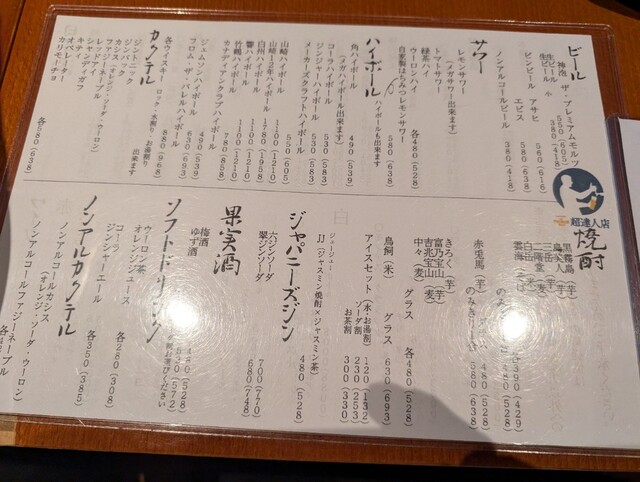 ビール
神泡 ザ・プレミアムモルツ
生ビール 550(605)
生ビール 小 380(418)
ビンビール アサヒ 560(616)
エビス 580(638)
ノンアルコールビール 380(418)
サワー
レモンサワー
(メガサワー出来ます)
トマトサワー
緑茶ハイ
ウーロンハイ 各480(528)
自家製はちみつレモンサワー
ハイボールも出来ます
ハイボール
角ハイボール 490(539)
(メガハイボール出来ます)
コーラハイボール 530(583)
ジンジャーハイボール 530(583)
メーカーズクラフトハイボール
550(605)
山崎ハイボール 1100(1210)
山崎12年ハイボール
白州ハイボール 1780(1958)
響ハイボール 1100(1210)
竹鶴ハイボール 1100(1210)
カナディアンクラブハイボール
780(858)
ジェムソンハイボール 490(539)
フロム・ザ・バレルハイボール
630(693)
各ウィスキー ロック・水割り・お湯割り
出来ます 880(968)
カクテル
ジントニック
ジンバック
カシス(オレンジ・ソーダ・ウーロン)
ファジーネーブル
レッドアイ
シャンディ・ガフ
キティ
オペレーター
カリモーチョ 各580(638)
超達人店
焼酎
黒霧島(芋)
島美人(芋)
三岳(芋)
二階堂(麦)
白岳(米)
雲海(そば)
各390(429)
480(528)
赤兎馬(芋) 480(528)
580(638)
きろく(芋)
富乃宝山(芋)
吉兆宝山(芋)
中々(麦) グラス 各480(528)
鳥飼(米) グラス 630(693)
アイスセット(水・お湯割) 120(132)
ソーダ割 230(253)
お茶割 300(330)
ジェージェー
JJ(ジャスミン焼酎×ジャスミン茶)
480(528)
ジャパニーズジン
六ジンソーダ 700(770)
翠ジンソーダ 680(748)
果実酒
梅酒 480(528)
ゆず酒 520(572)
ソフトドリンク
ウーロン茶
オレンジジュース
コーラ
ジンジャーエール 各280(308)
ノンアルカクテル
ノンアルコールカシス
(オレンジ・ソーダ・ウーロン)
各350(385)
ノンアルコールファジーネーブル